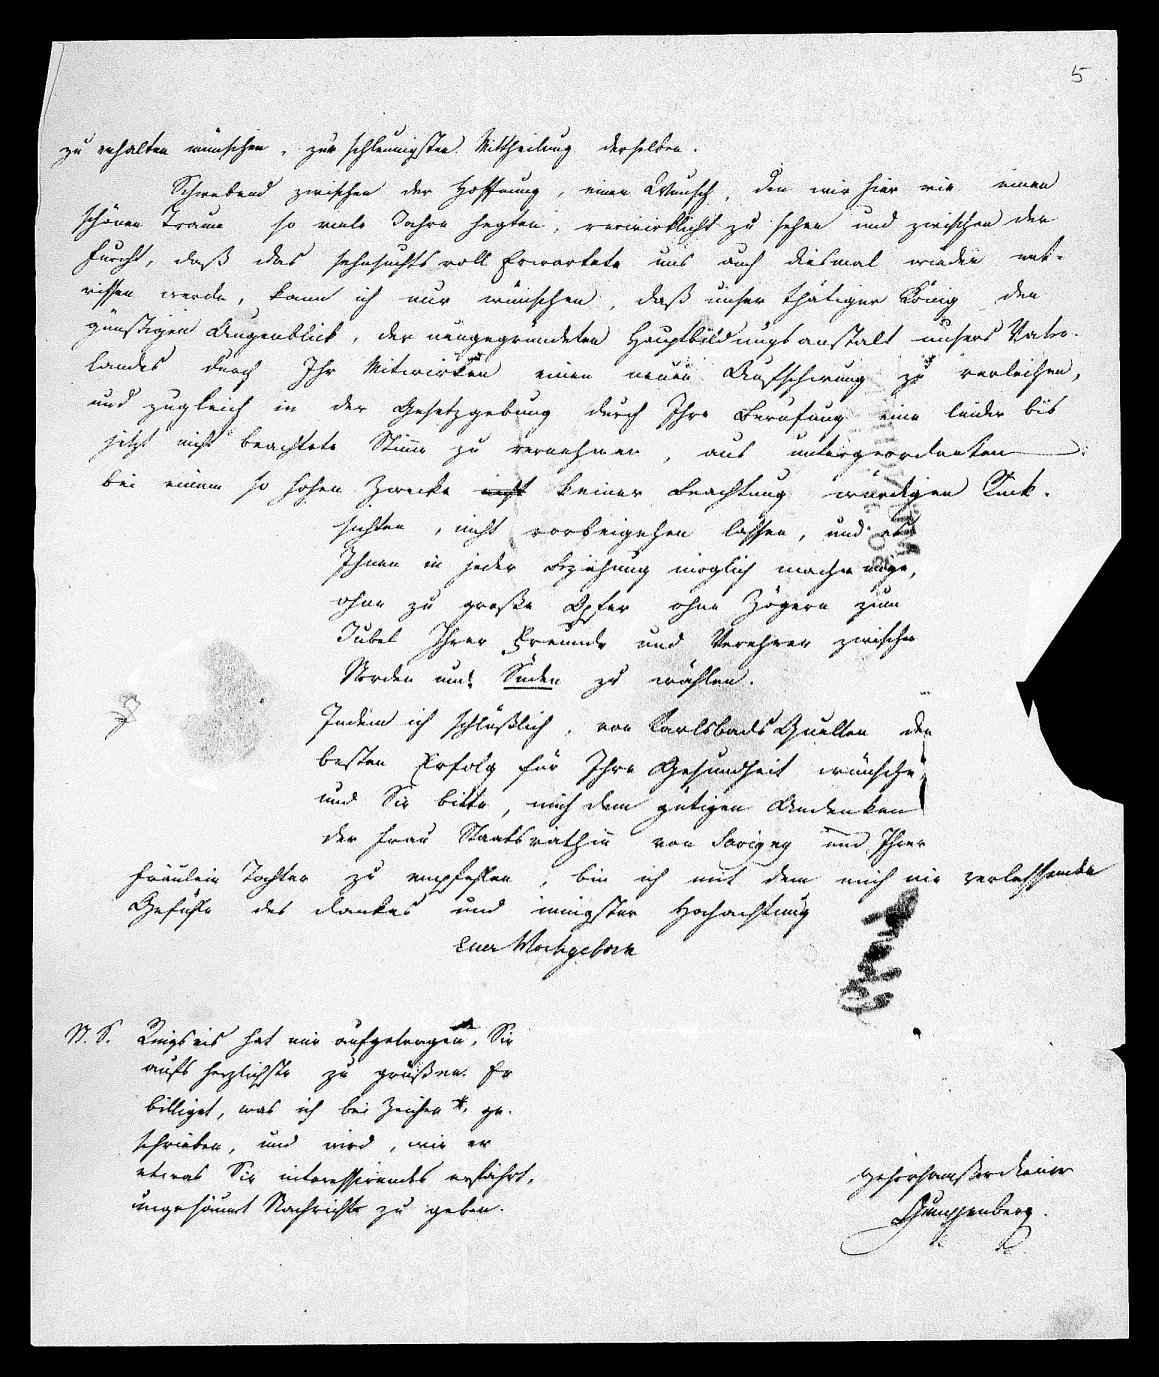 5
zu erhalten wünschen, zur schleunigsten Mittheilung derselben.
Schwebend zwischen der Hoffnung, einen Wunsch, den wir hier wie einen
schönen Traum so viele Jahre hegten, verwirklicht zu sehen und zwischen der
Furcht, daß das sehnsuchtsvoll Erwartete uns auch diesmal wieder ent-
rissen werde, kann ich nur wünschen, daß unser thätiger König den
günstigen Augenblick, der neugegründeten Hauptbildungsanstalt unsers Vater-
landes durch Ihr Mitwirken einen neuen Aufschwung zu verleihen,
und zugleich in der Gesetzgebung durch Ihre Berufung eine leider bis
jetzt nicht beachtete Stimme zu vernehmen, aus untergeordneten
bei einem so hohen Zwecke nicht keiner Beachtung würdigen Rück-
sichten, nicht vorbeigehen lassen, und es
Ihnen in jeder Beziehung möglich machen möge,
ohne zu große Opfer ohne Zögern zum
Jubel Ihrer Freunde und Verehrer zwischen
Norden und Süden zu wählen.
Indem ich schlüßlich, von Carlsbads Quellen den
besten Erfolg für Ihre Gesundheit wünsche
und Sie bitte, mich dem gütigen Andenken
der Frau Staatsräthin von Savigny und Ihrer
Fräulein Tochter zu empfehlen, bin ich mit dem mich nie verlassenden
Gefühle des Dankes und innigster Hochachtung
Euer Hochgeborn
N. S. Ringseis hat mir aufgetragen, Sie
aufs herzlichste zu grüßen. Er
billiget, was ich bei Zeichen *, ge-
schrieben, und wird, wie er
etwas Sie interessirendes erfährt,
ungesäumt Nachricht zu geben.
gehorsamster Diener
Gumppenberg.